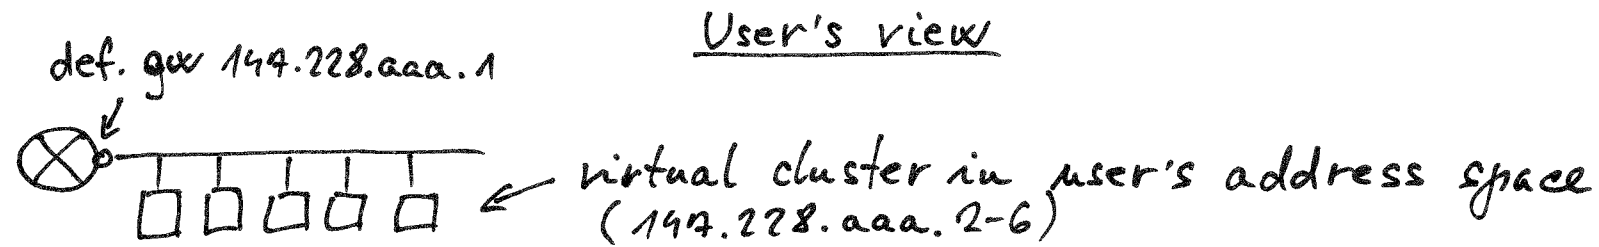 User's view
def. gw 147.228.aaa.1
virtual cluster in user's address space
(147.228.aaa.2-6)